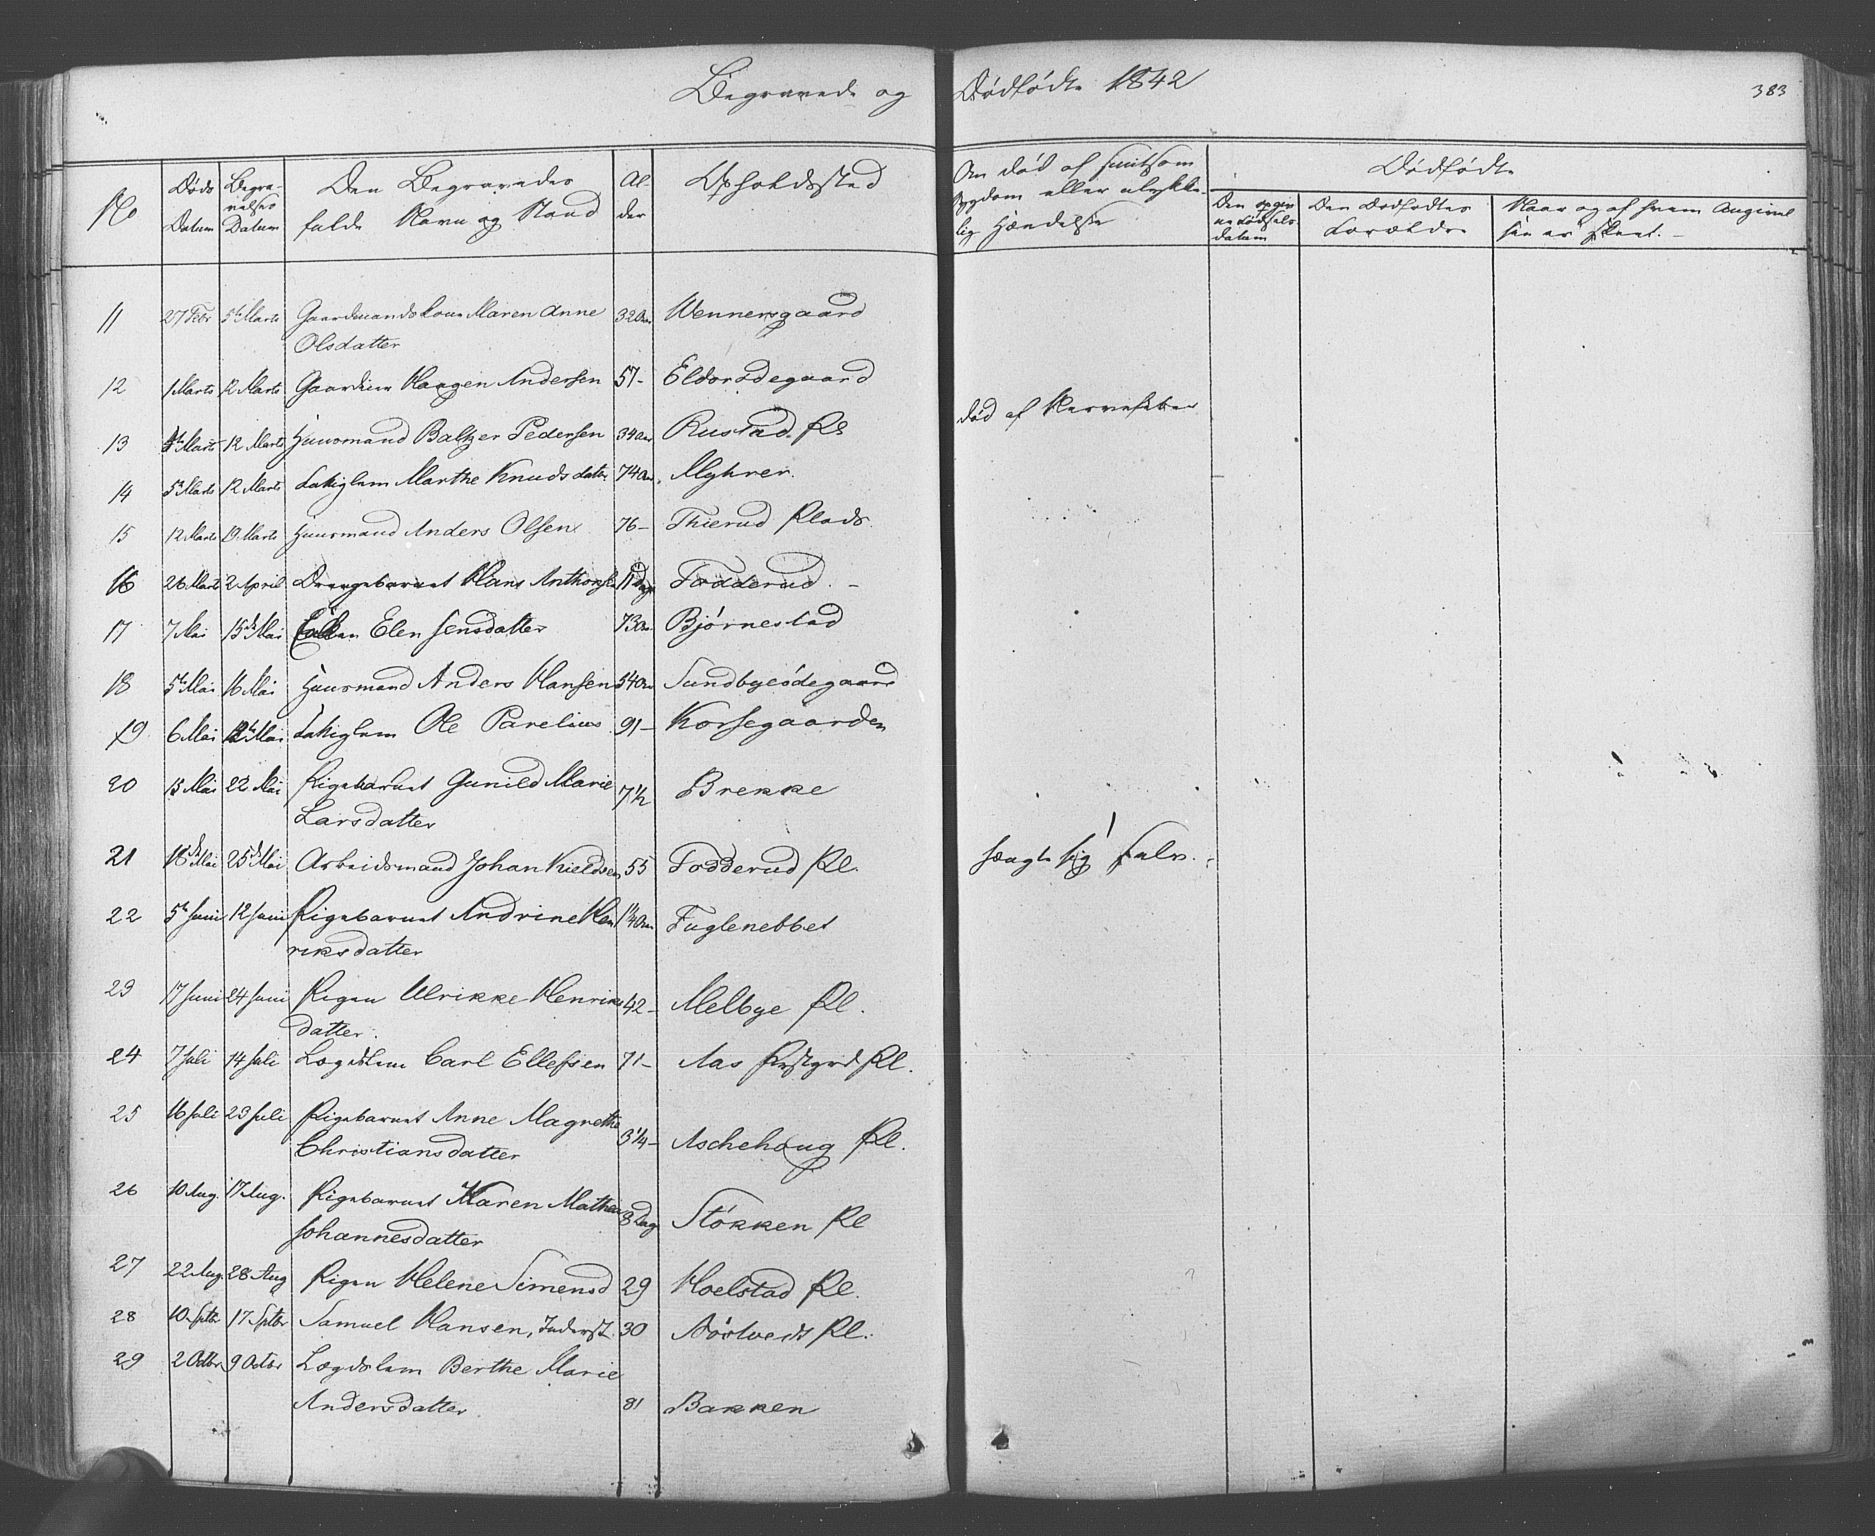 Begravede og Dødfødte 1842
383
No
Døds Datum
Begravelses Datum
Den Begravedes fulde Navn og Stand
Alder
Opholdssted
Om død af smitsom
Sygdom eller ulykke-
lig Hændelse
Dødfødte
Den
datum
Den Dødfødtes
Forældre
Naar og af hvem Angivel
sen er skeet.
11 27 Febr 5te Marts Gaardmandskone Maren Anne 32 Aar Wennersgaard
Olsdatter
12 1 Marts 12 Marts Gaardeier Haagen Andersen 57 - Eldorødegaard
død af Nervefeber
13 Marts 12 Marts Huusmand Baltzer Pedersen 34 Aar Rustad Pl
14 5te Marts 12 Marts Lægdslem Marthe Knudsdatter 74 Aar Myhrer.
15 12 Marts 19 Marts Huusmand Anders Olsen 76 - Thierud Plads
16 26 Marts 2 April Drengebarnet Hans Anthonsen 11 Dage Fodderud. -
17 7 Mai 15de Mai Elen Jensdatter 73 Aar Bjørnestad
18 5te Mai 16 Mai Huusmand Anders Hansen 54 Aar Sundbyeødegaard
19 6 Mai Mai Lægdslem Ole Parelius 91 - Korsegaarden
20 13 Mai 22 Mai Pigebarnet Gunild Marie 7½ Brekke
Larsdatter
21 18de Mai 25de Mai Arbeidsmand Johan Kieldsen 55 Fodderud Pl.
hængte sig selv.
22 5te Juni 12 Juni Pigebarnet Andrine Hen 1¼ Aar Fuglenebbet
riksdatter
23 17 Juni 24 Juni Pigen Ulrikke Henriks 42 - Melbye Pl.
datter.
24 7 Juli 14 Juli Lægdslem Carl Ellefsen 71 - Aas Præstgrd Pl.
25 16 Juli 23 Juli Pigebarnet Anne Magrethe 3¼ - Aschehoug Pl.
Christiansdatter
26 10 Aug. 17 Aug. Pigebarnet Karen Mathea 8 Dage Støkken Pl
Johannesdatter
27 22 Aug. 28 Aug Pigen Helene Simensd 29 Hoelstad Pl.
28 10 Septbr 17 Septbr Samuel Hansen, Inderst. 30 Nøstvedt Pl.
29 2 Octbr 9 Octbr Lægdslem Berthe Marie
Andersdatter 81 Bakken